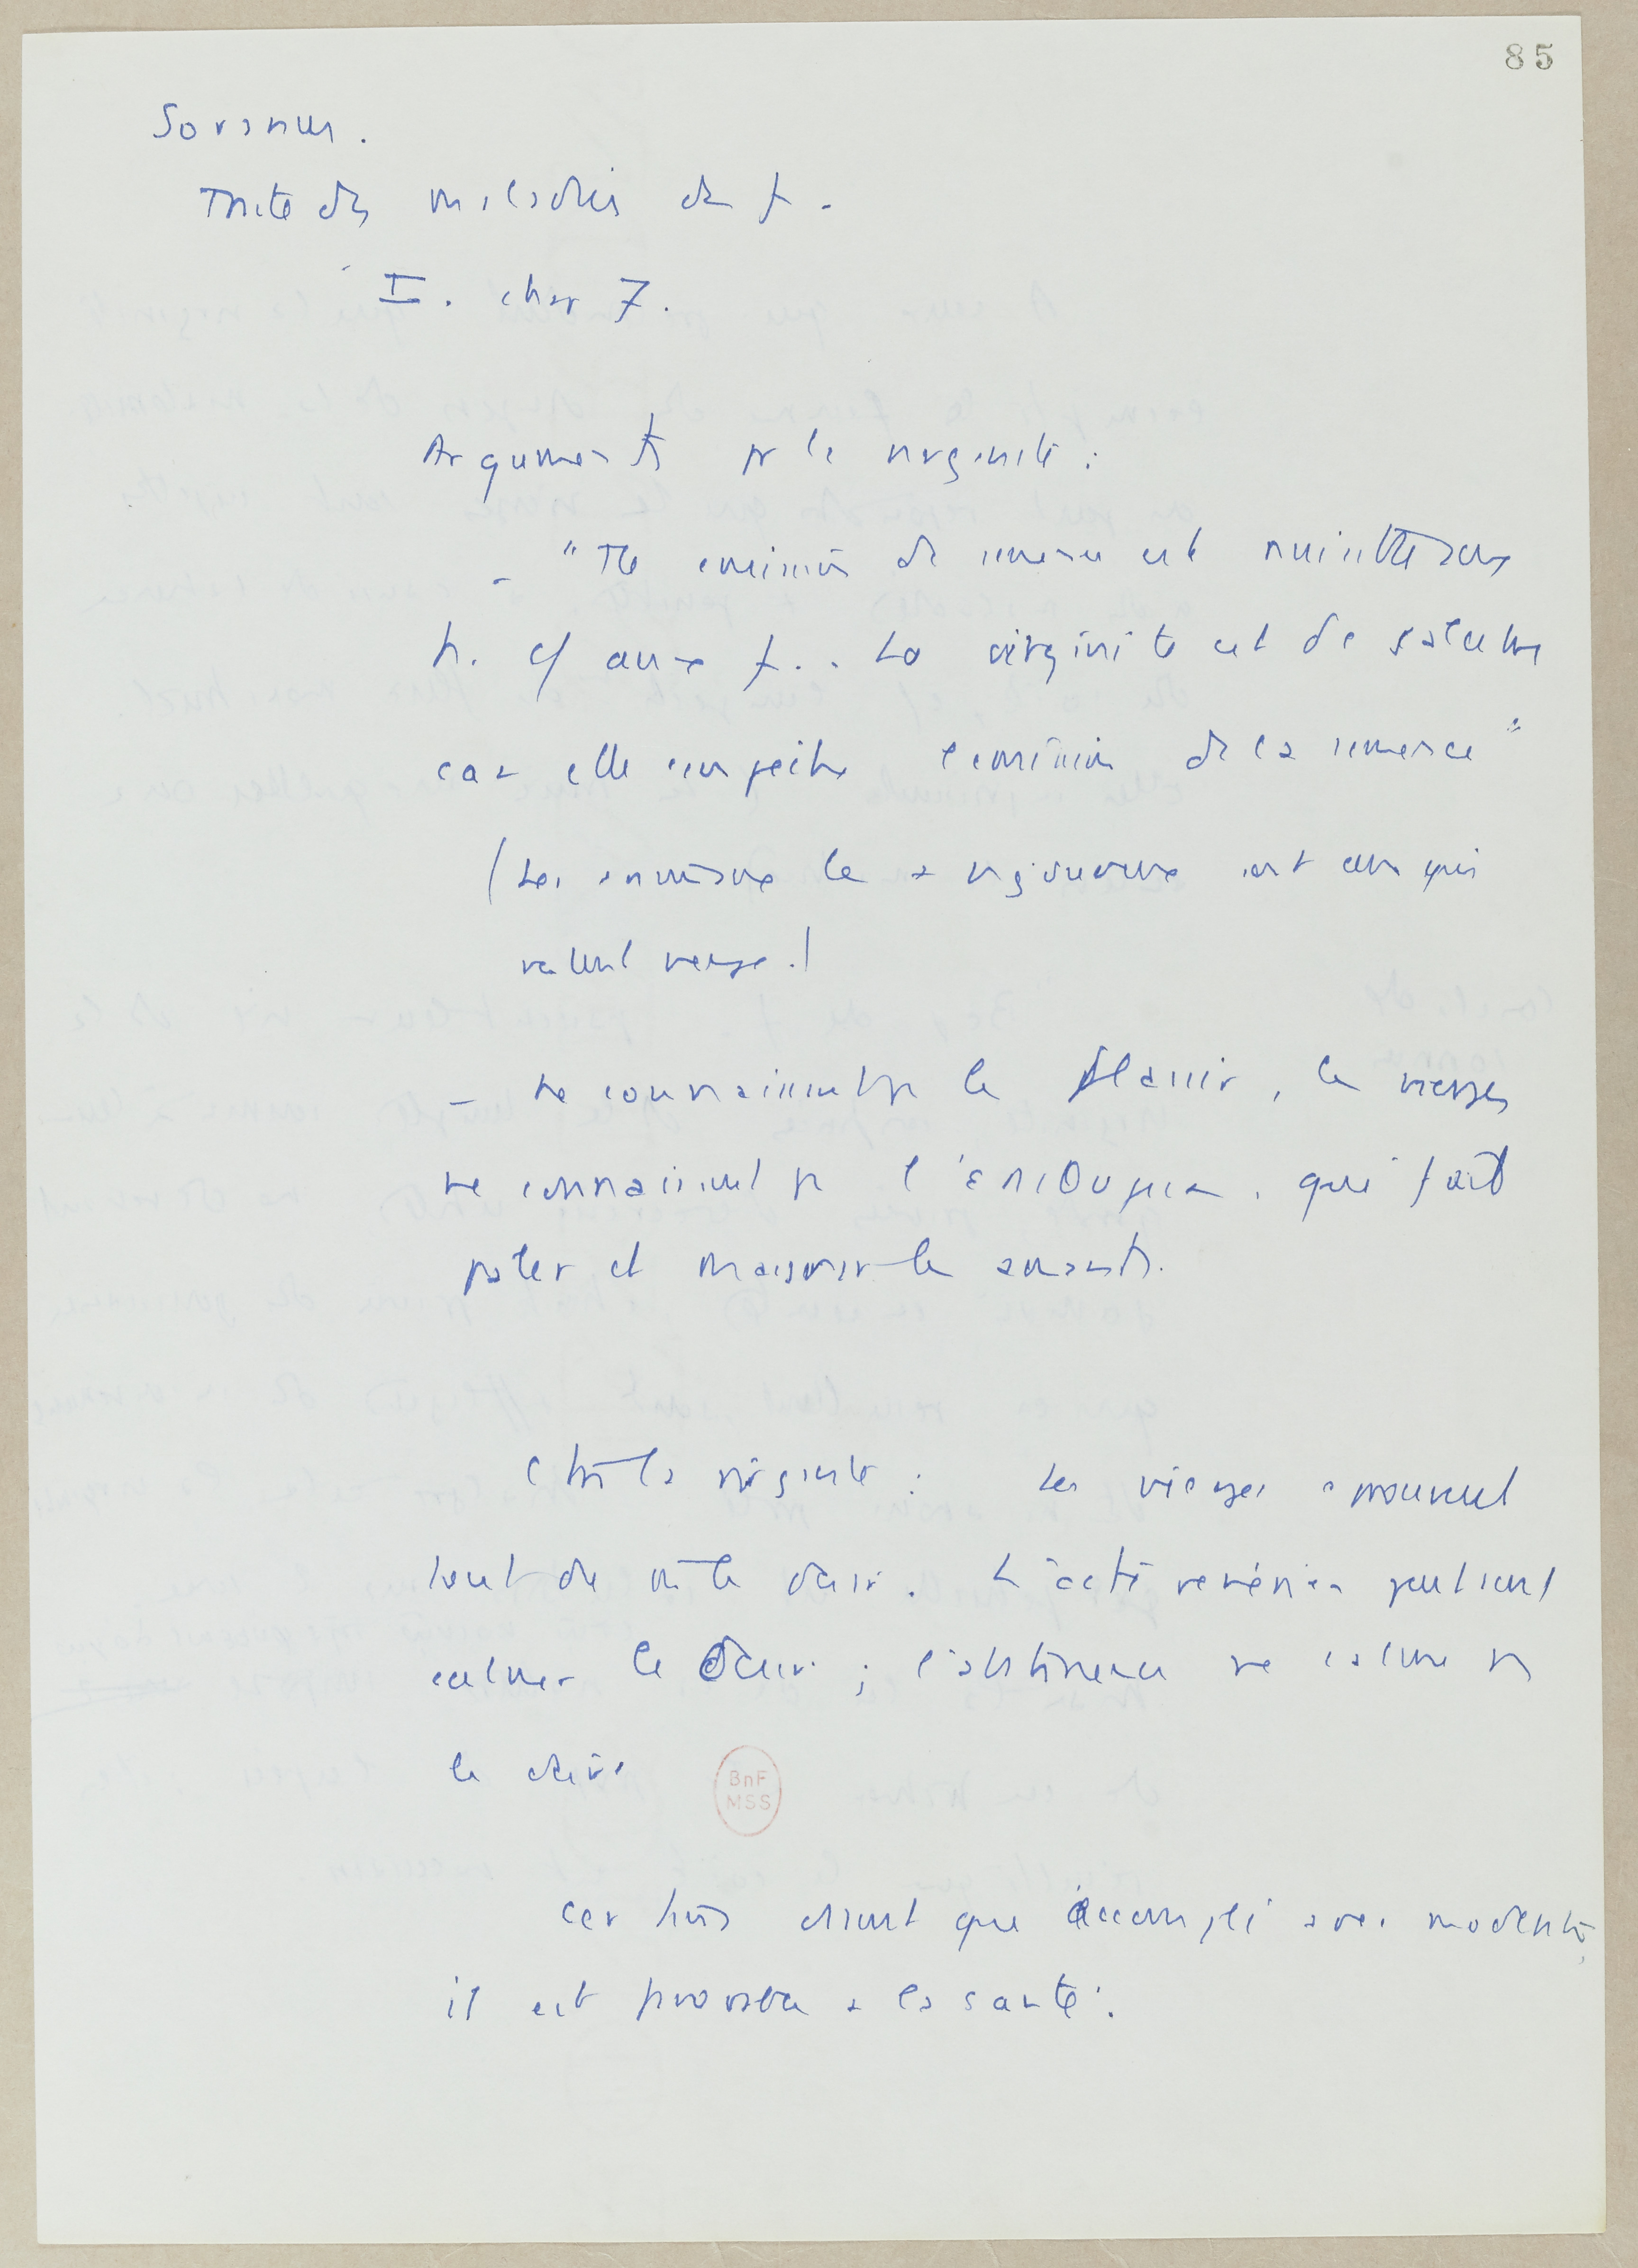 85
Soranus.
Traité des maladies des f.
I. chap 7.
Arguments pr la virginité :
- "Tte émission de semence est nuisible aux
h. c/ aux f.. La virginité est dc salutaire
car elle empêche l'émission de la semence"
(Les animaux les + vigoureux sont ceux qui
restent vierges.)
- Ne connaissant pas le plaisir, les vierges
ne connaissent pas l' qui fait
pâler et maigrir les amants.
Ctre la virginité : Les vierges éprouvent
tout de même le désir. L'acte vénérien peut seul
calmer le désir ; l'abstinence ne calme pas
le désir
BnF
MSS
Certains disent que accompli avec modération,
il est favorable à la santé.